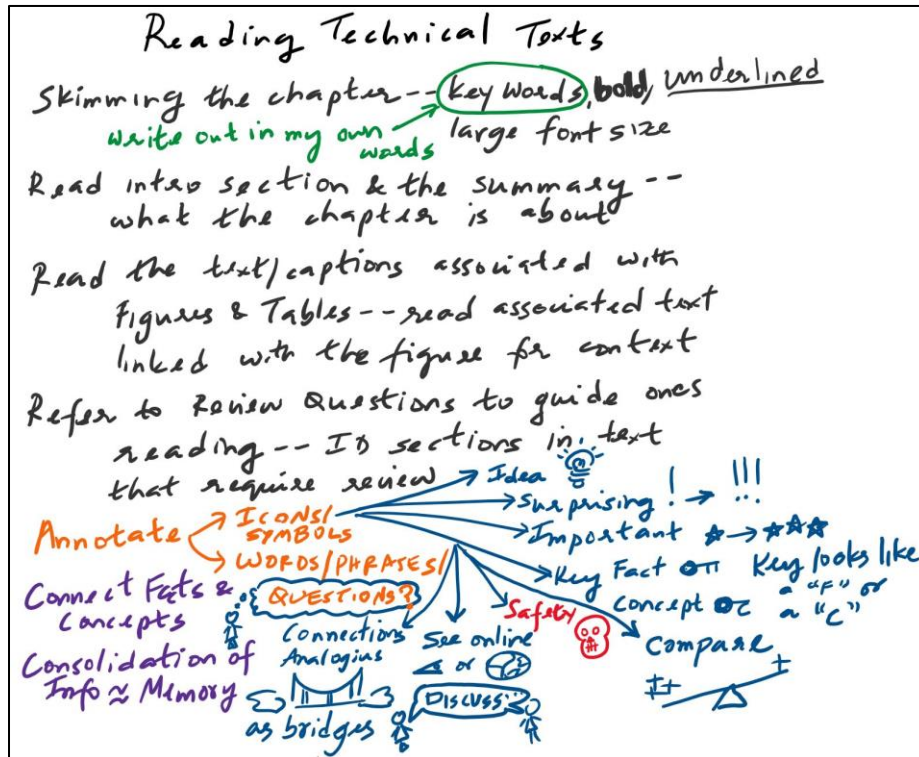 Reading Technical Texts
Skimming the chapter -- key words, bold, underlined
write out in my own words
large font size
Read intro section & the summary --
what the chapter is about
Read the text/captions associated with
Figures & Tables -- read associated text
linked with the figure for context
Refer to Review Questions to guide ones
reading -- ID sections in text
that require review
Annotate
ICONS/
SYMBOLS
WORDS/PHRASES/
QUESTIONS?
Idea
Surprising ! → !!!
Important ☆ → ☆☆☆
Key Fact
Concept
Key looks like
a "F" or
a "C"
Compare
+
++
Safety
See online
or
DISCUSS
Connections
Analogius
as bridges
Connect Facts &
Concepts
Consolidation of
Info ≈ Memory